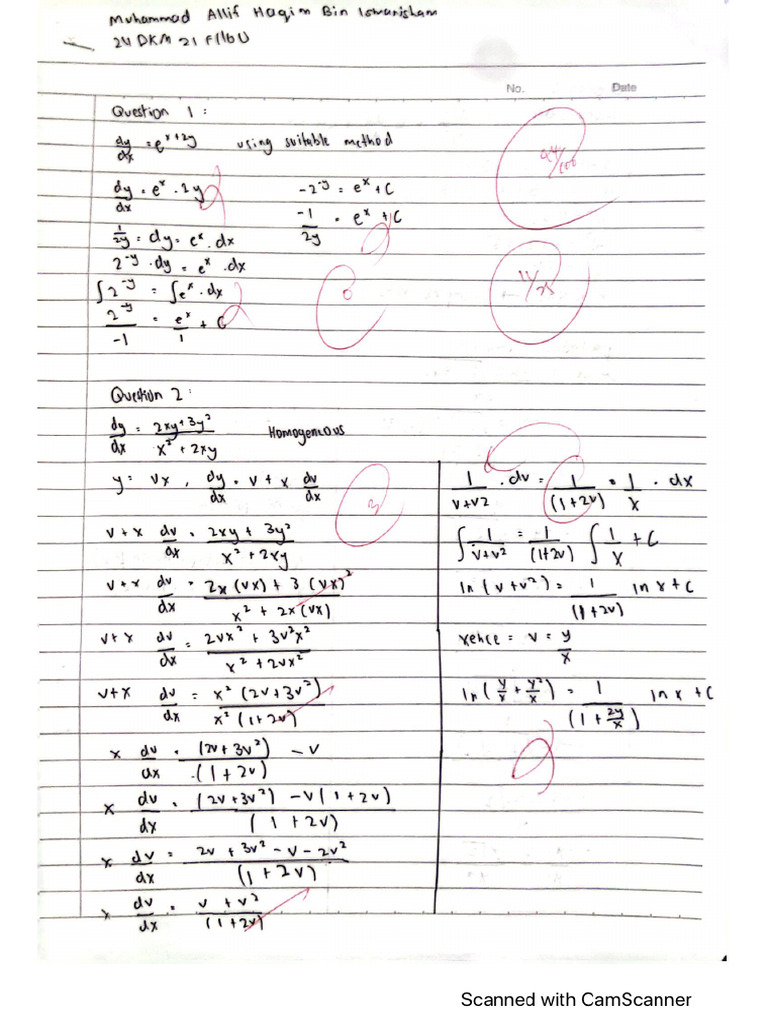 Muhammad Allif Haqim Bin Iswanisham
24 DKM 21 F1160
No. Date
Question 1 :
dy/dx = e^(x+2y) using suitable method
dy/dx = e^x . 2y
1/2y = dy = e^x . dx
2^-y . dy = e^x . dx
∫ 2^-y = ∫ e^x . dx
2^-y/-1 = e^x/1 + C
-2^-y = e^x + C
-1/2y = e^x + C
0
44/100
11/25
Question 2 :
dy/dx = (2xy + 3y²)/(x² + 2xy) Homogenous
y = vx , dy/dx = v + x dv/dx
3
v + x dv/dx = (2xy + 3y²)/(x² + 2xy)
v + x dv/dx = (2x (vx) + 3 (vx)²)/(x² + 2x (vx))
v + x dv/dx = (2vx² + 3v²x²)/(x² + 2vx²)
v + x dv/dx = x² (2v + 3v²)/x² (1 + 2v)
x dv/dx = (2v + 3v²)/(1 + 2v) - v
x dv/dx = ((2v + 3v²) - v (1 + 2v))/(1 + 2v)
x dv/dx = (2v + 3v² - v - 2v²)/(1 + 2v)
x dv/dx = (v + v²)/(1 + 2v)
1/(v+v2) . dv = 1/(1+2v) = 1/x . dx
∫ 1/(v+v²) = 1/(1+2v) ∫ 1/x + C
ln (v+v²) = 1/(1+2v) ln x + C
= v = y/x
ln (y/x + y²/x) = 1/(1 + 2y/x) ln x + C
Scanned with CamScanner